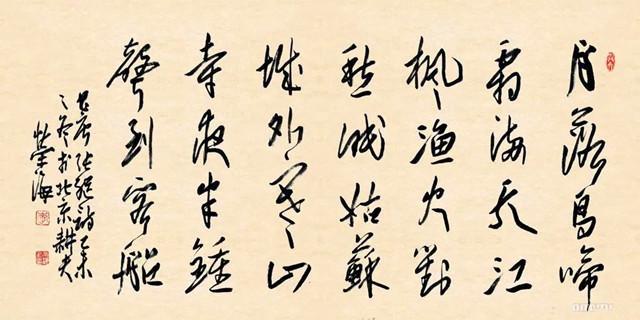 月落烏啼
霜滿天江
楓漁火對
愁眠姑蘇
城外寒山
寺夜半鐘
聲到客船
唐張繼詩乙未
之冬於北京耕夫